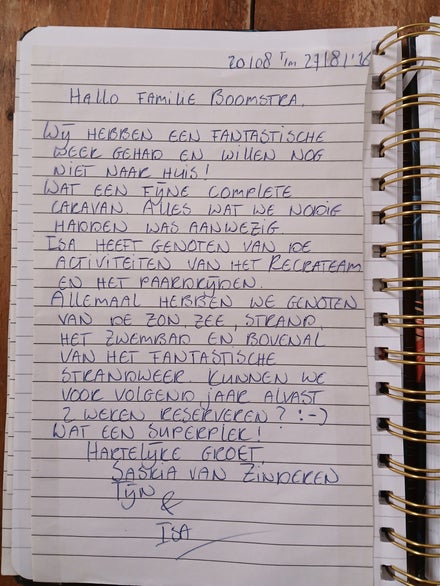 20/08 T/m 27/8/'16
HALLO FAMILIE BOOMSTRA,
WIJ HEBBEN EEN FANTASTISCHE
WEEK GEHAD EN WILLEN NOG
NIET NAAR HUIS!
WAT EEN FIJNE COMPLETE
CARAVAN. ALLES WAT WE NODIG
HADDEN WAS AANWEZIG.
ISA HEEFT GENOTEN VAN DE
ACTIVITEITEN VAN HET RECRATEAM
EN HET PAARDRIJDEN.
ALLEMAAL HEBBEN WE GENOTEN
VAN DE ZON, ZEE, STRAND,
HET ZWEMBAD EN BOVENAL
VAN HET FANTASTISCHE
STRANDWEER. KUNNEN WE
VOOR VOLGEND JAAR ALVAST
2 WEKEN RESERVEREN? :-)
WAT EEN SUPERPLEK!
HARTELIJKE GROET
SASKIA VAN ZINDEREN
TIJN
&
ISA